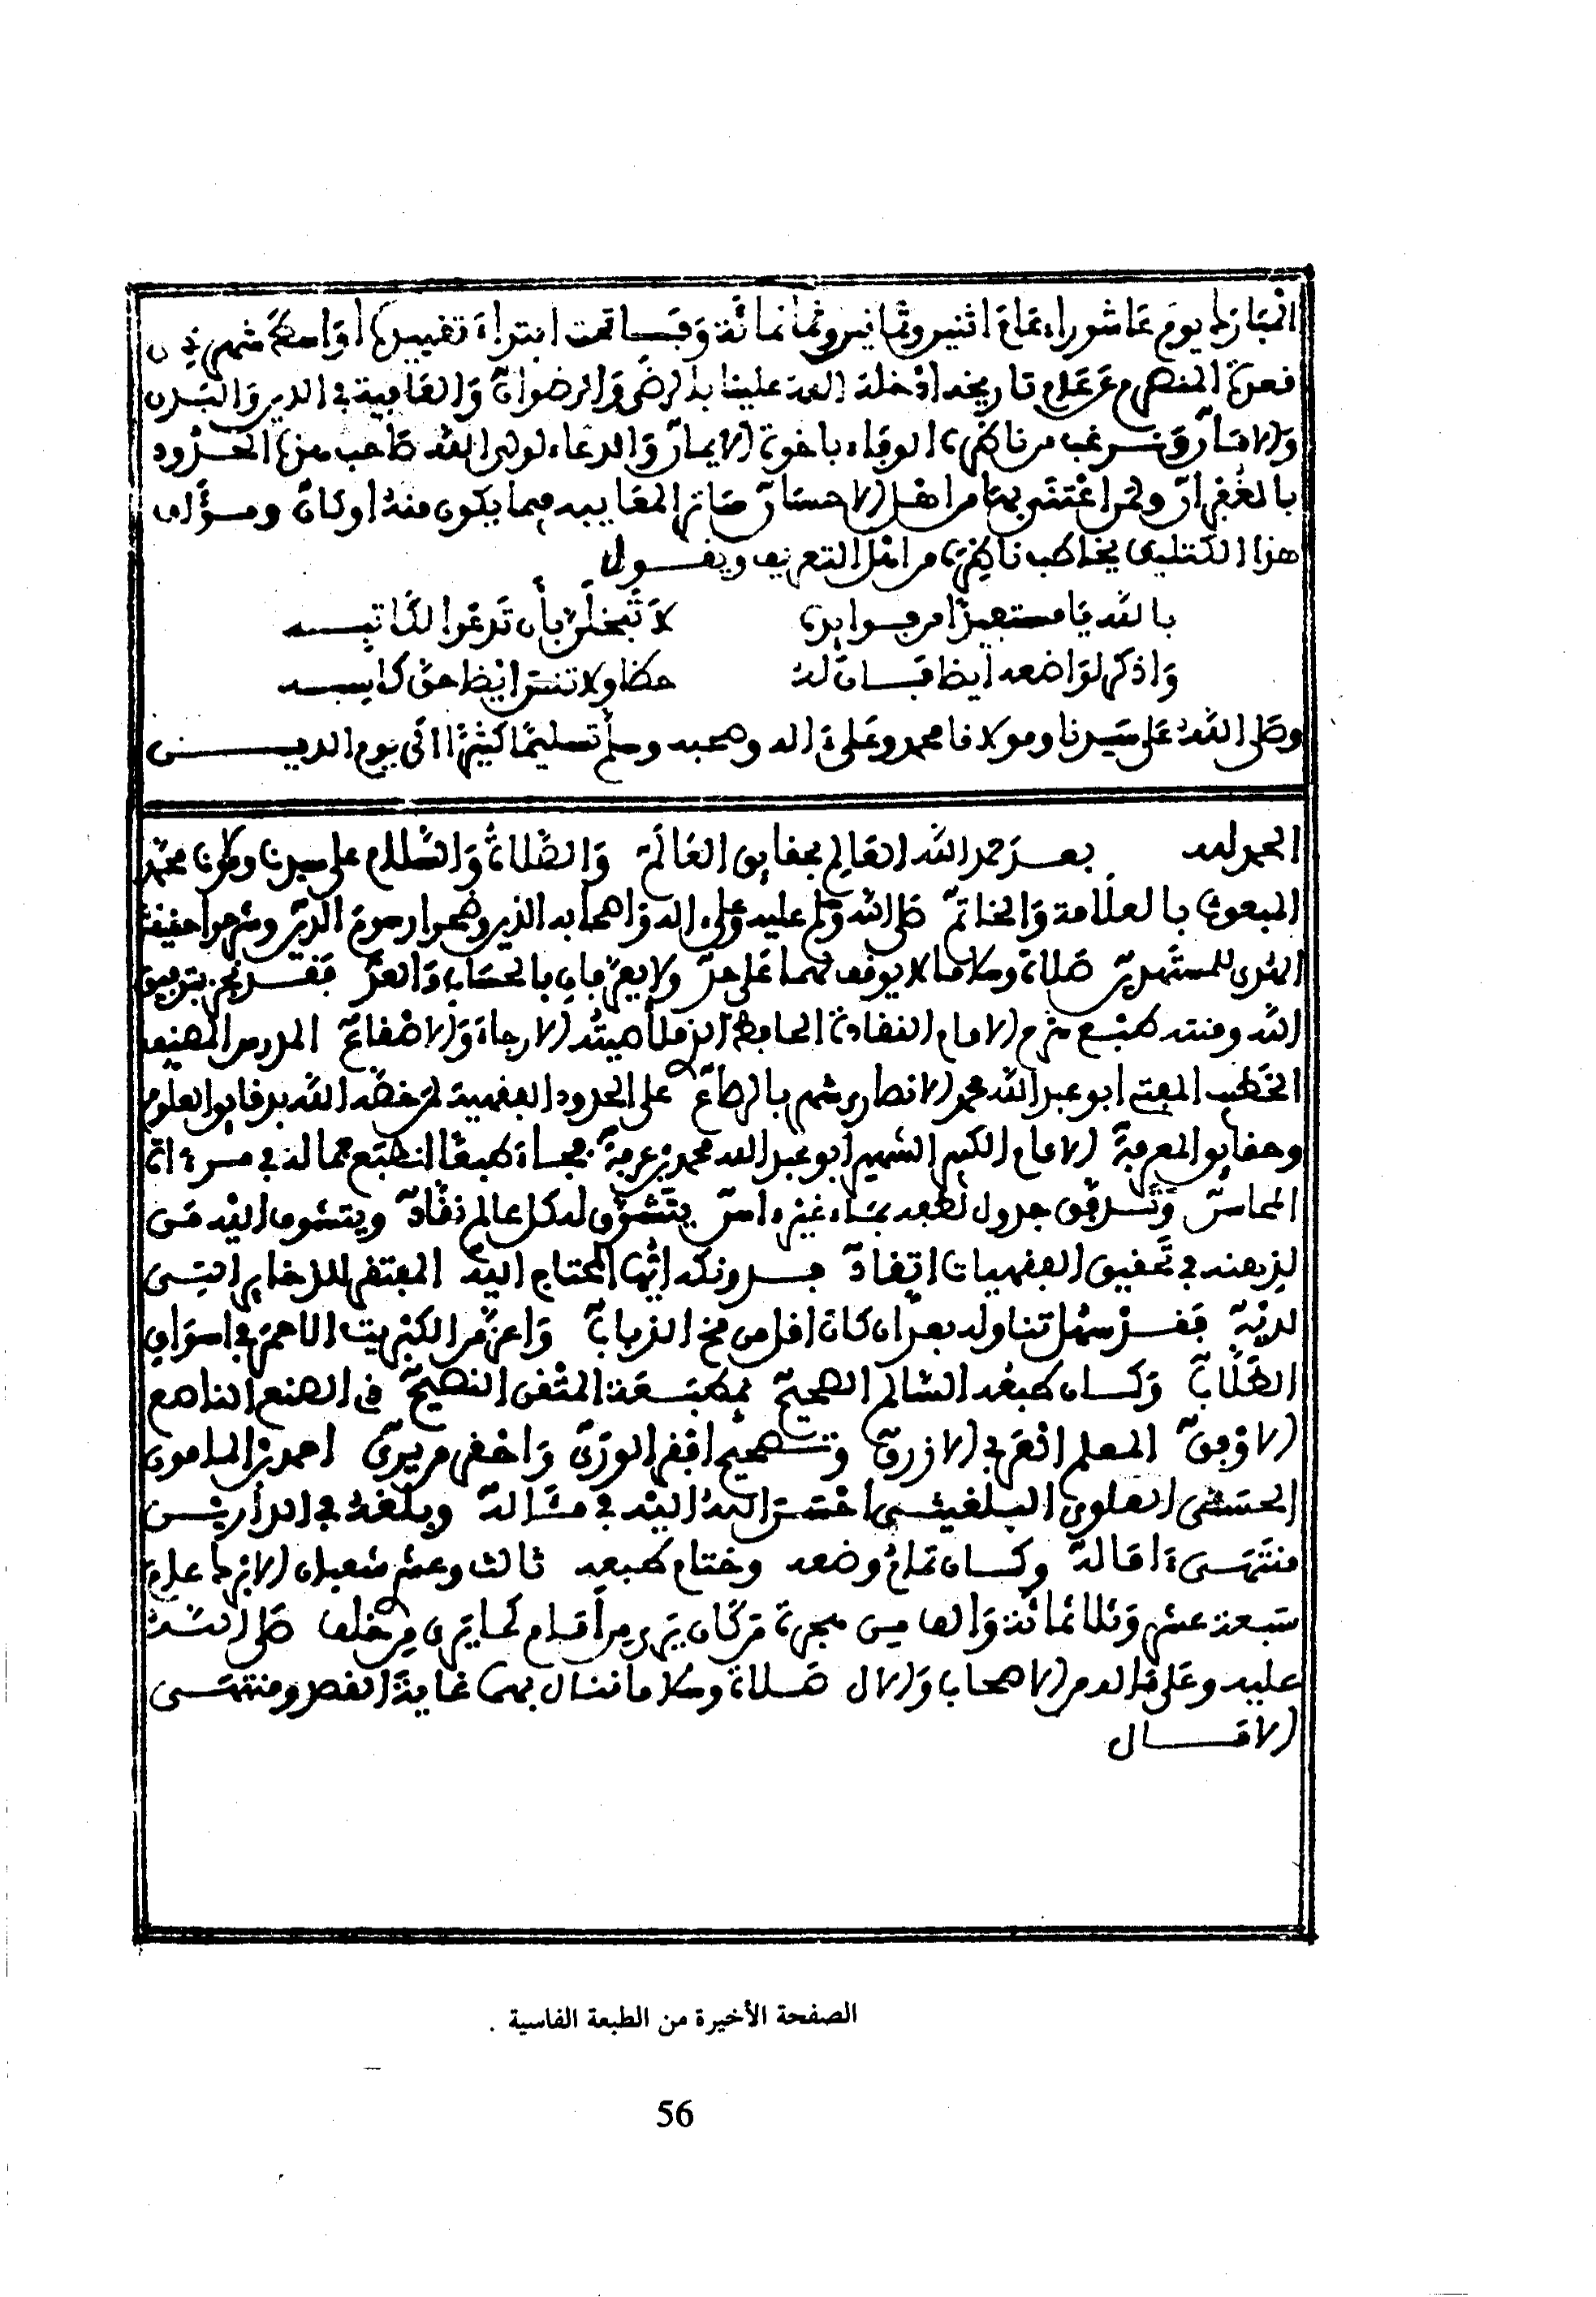 المبارك يوم عاشوراء عام اثنين وثمانين وثمانمائة وقد تمت ابتداء تقييدها أواسط شهر ذي
قعدة المنصرم عن عام تاريخه أدخله الله علينا بالرضى والرضوان والعافية في الدين والبدن
والأمان ونرغب من ناظره الوفاء بأخوة الإيمان والدعاء لولي الله صاحب هذه الحدود
بالغفران ولمن اعتنى بها من أهل الإحسان ساترا لمعايبه فيما يكون منه أو كان ومؤلف
هذا التقييد يخاطب ناظره من أهل التعريف ويقول
بالله يا مستفيدا من فوايده لا تبخلن بأن تدعو الكاتبه
واذكر لواضعه أيضا فإن له حظا ولا تنس أيضا حق كاسبه
وصلى الله على سيدنا ومولانا محمد وعلى ءاله وصحبه وسلم تسليما كثيرا الى يوم الدين
الحمد لله بعد حمد الله العالم بحقايق العالم والصلاة والسلام على سيدنا ومولانا محمد
المبعوث بالعلامة والخاتم صلى الله وسلم عليه وعلى ءاله وأصحابه الذين وضحوا رسوم الدين وشرحوا حقيقة
الهدى للمستهدين صلاة وسلاما لا يوقف لهما على حد ولا يعرفان بالحساب والعد فقد نجز بتوفيق
الله ومنته طبع شرح الإمام النقادة الحافظ الذي ملأ صيته الأرجاء والأصقاع المدرس المصنف
الخطيب المفتي أبو عبد الله محمد الأنصاري شهر بالرصاع على الحدود الفقهية لمن خصه الله بدقايق العلوم
وحقايق المعرفة الإمام الكبير الشهير أبو عبد الله محمد بن عرفة فجاء طبعا انطبع جماله في مرءاة
المحاسن وتدفق جدول لطفه بماء غير ءاسن يتشوق له كل عالم نقاد ويتشوف اليه من
لذهنه في تحقيق الفقهيات اتقاد فدونكه أيها المحتاج اليه المفتقر للذخاير التي
لديه فقد سهل تناوله بعد أن كان أقل من مخ الذباب وأعز من الكبريت الأحمر في أسواق
الطلاب وكان طبعه السالم الصحيح بمطبعة المتقن النصيح في الصنع الناصع
الأوفق المعلم العربي الأزرق وتصحيح أفقر الورى وأحقر من يرى أحمد بن المامون
الحسني العلوي البلغيثي أحسن الله اليه في مئاله وبلغه في الدارين
منتهى ءاماله وكان تمام وضعه وختام طبعه ثالث وعشر شعبان الأبرك عام
سبعة عشر وثلاثمائة وألف من هجرة من كان يرى من أمام كما يرى من خلف صلى الله
عليه وعلى ماله من الأصحاب والآل صلاة وسلاما ننال بهما غاية القصد ومنتهى
الآمال
الصفحة الأخيرة من الطبعة الفاسية .
56